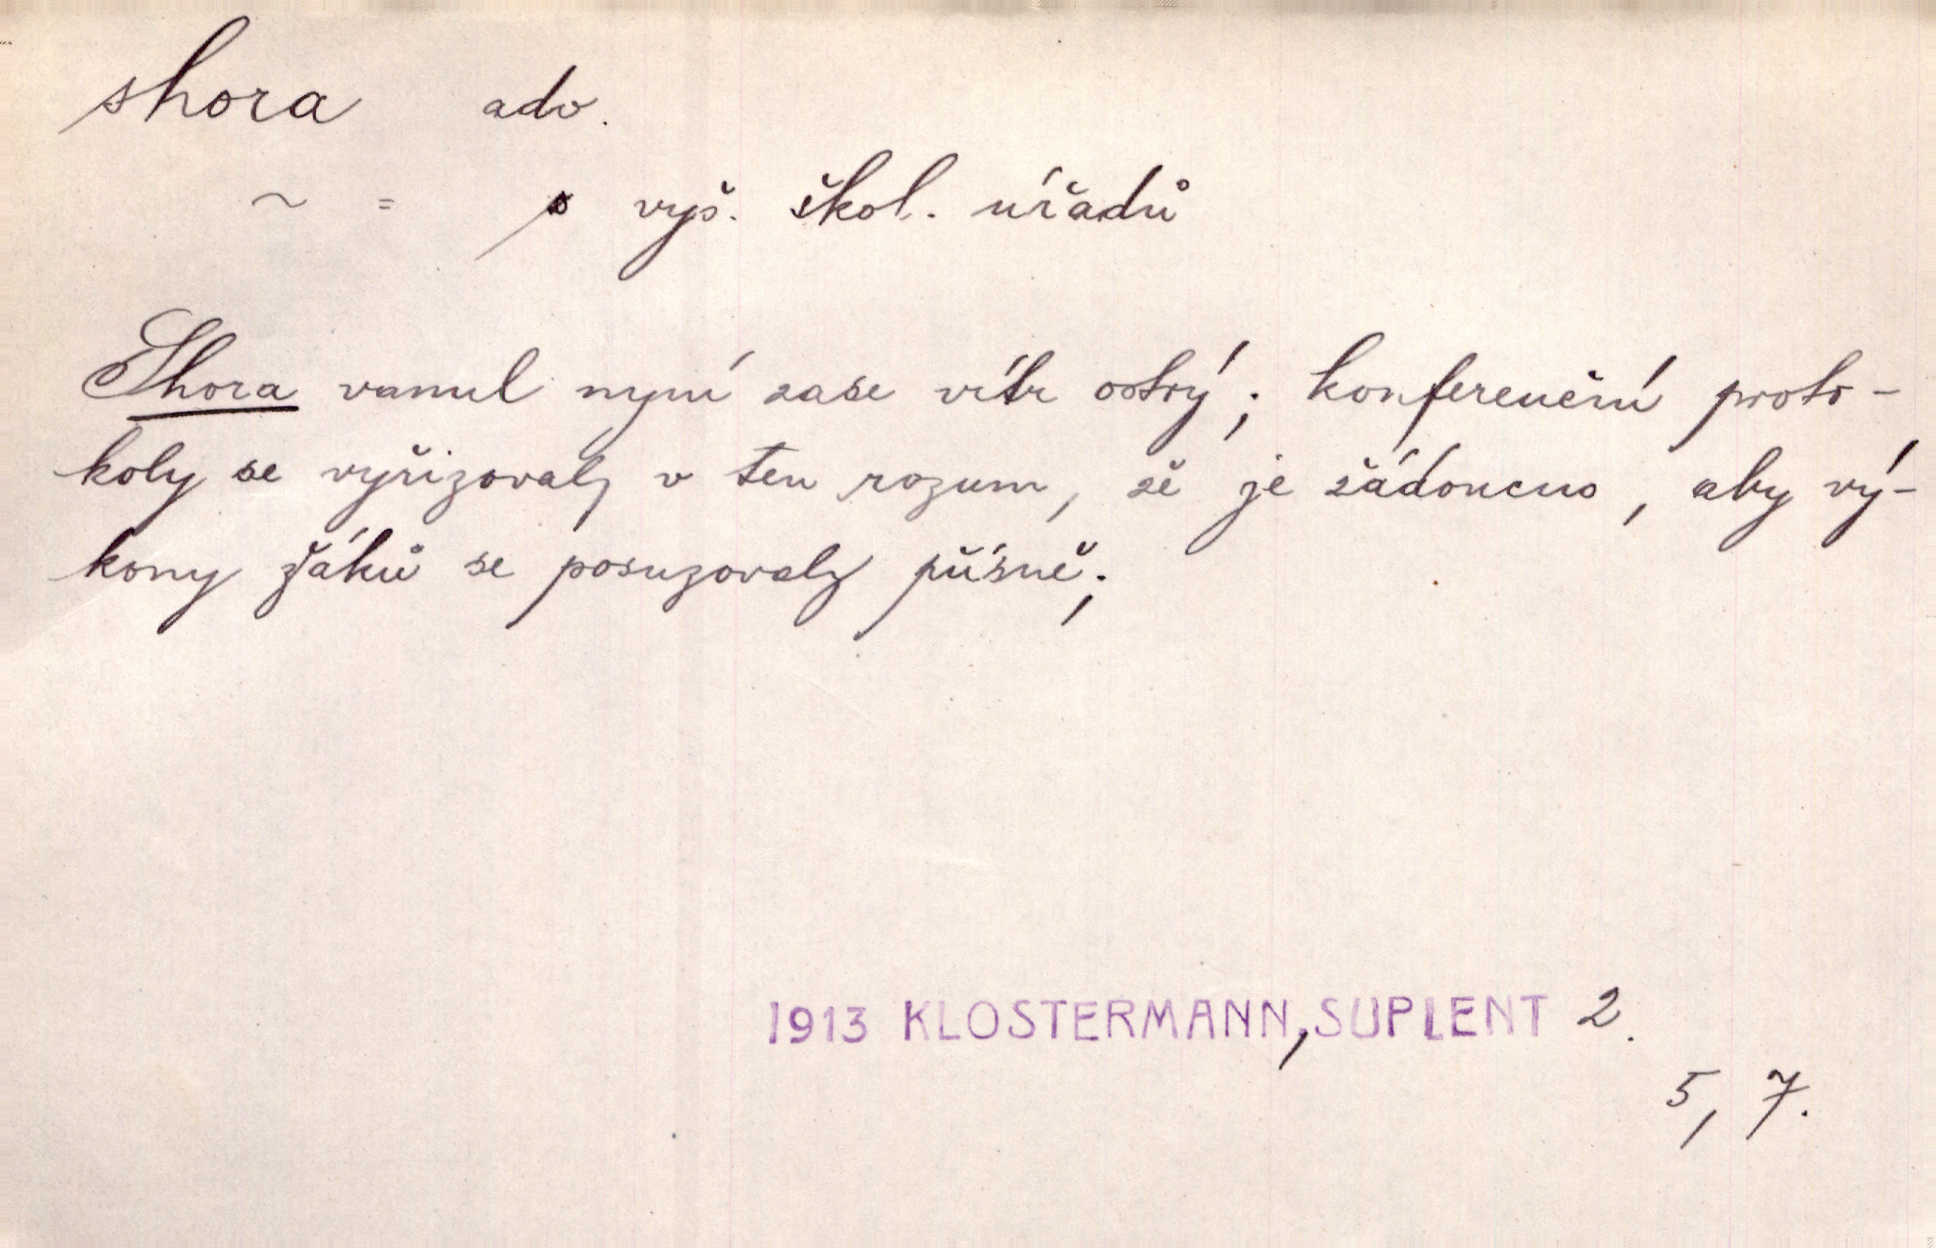 shora adv.
~ = s vyš. škol. úřadů
Shora vanul nyní zase vítr ostrý; konferenční proto-
koly se vyřizovaly v ten rozum, že je žádoucno, aby vý-
kony žáků se posuzovaly přísně;
1913 KLOSTERMANN, SUPLENT 2.
5, 7.